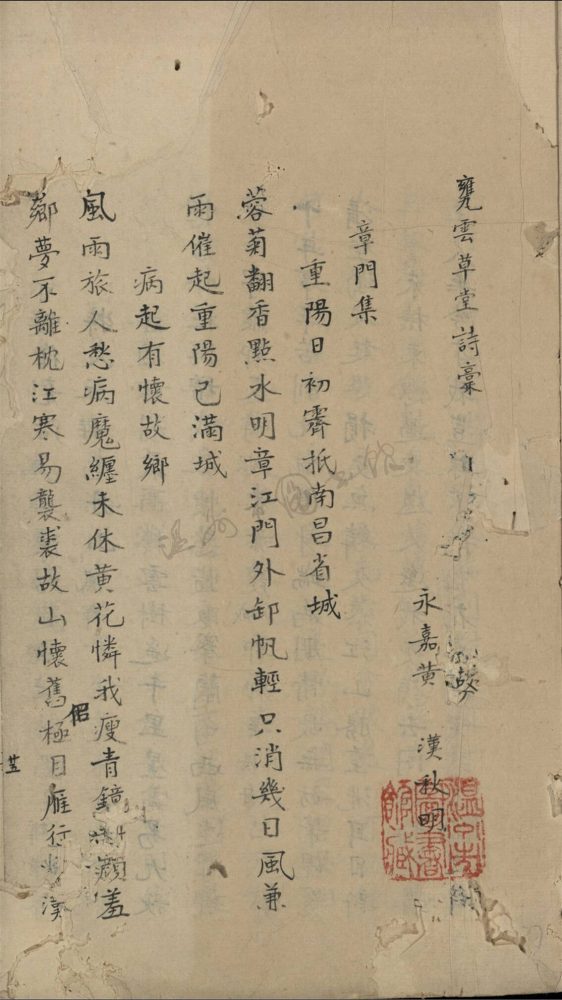 甕雲草堂詩稾
永嘉黃漢秋明
章門集
重陽日初霽抵南昌省城
蓉菊翻香點水明章江門外卸帆輕只消幾日風兼
雨催起重陽已滿城
病起有懷故鄉
風雨旅人愁病魔纏未休黃花憐我瘦青鏡顏羞
鄉夢不離枕江寒易襲裘故山懷舊侶極目雁行